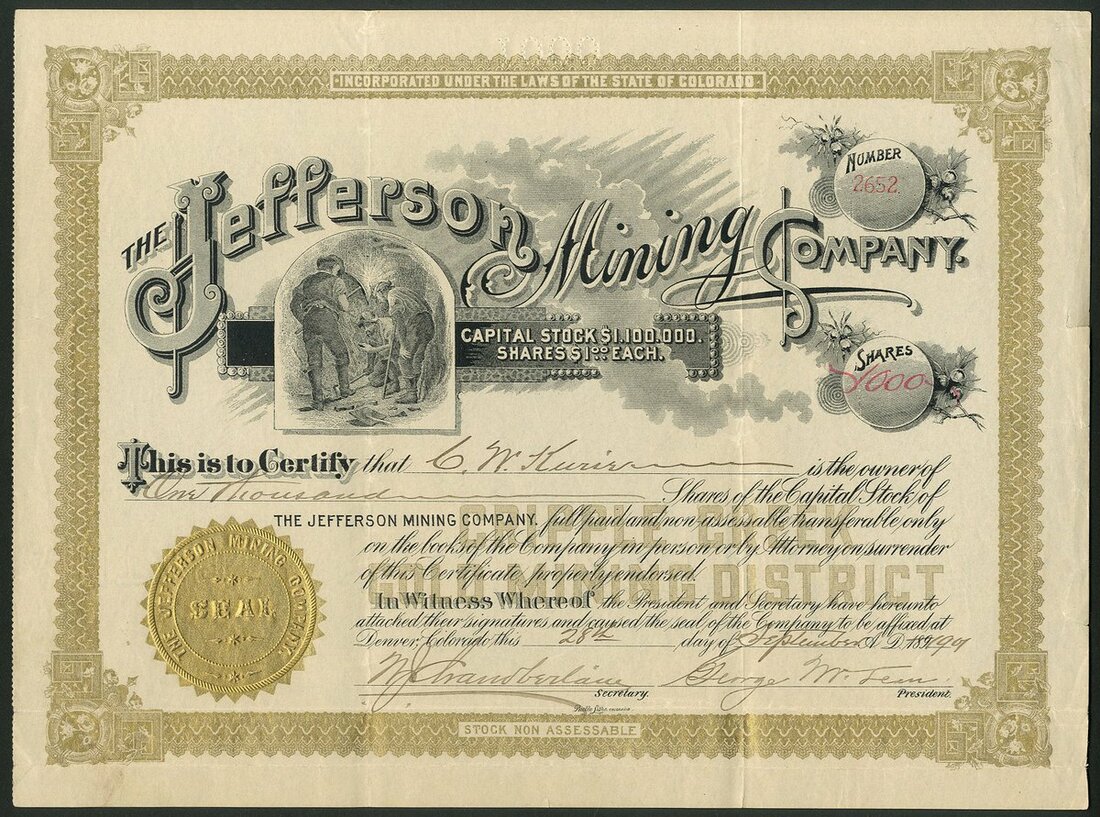 1000
INCORPORATED UNDER THE LAWS OF THE STATE OF COLORADO
THE Jefferson Mining COMPANY.
NUMBER
2652
CAPITAL STOCK $1,100,000.
SHARES $1.00 EACH.
SHARES
1000
This is to Certify that C. W. Kurie is the owner of
One Thousand Shares of the Capital Stock of
THE JEFFERSON MINING COMPANY. full paid and non-assessable transferable only
on the books of the Company in person or by Attorney on surrender
of this Certificate properly endorsed.
CRIPPLE CREEK
GOLD MINING DISTRICT
In Witness Whereof the President and Secretary have hereunto
attached their signatures and caused the seal of the Company to be affixed at
Denver, Colorado, this 28th day of September A. D. 189
THE JEFFERSON MINING COMPANY
SEAL
George W.
Secretary. President.
STOCK NON ASSESSABLE